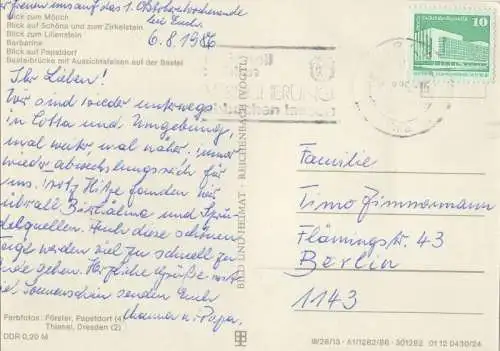 freuen uns auf das 1. Oktoberwochenende
bei Euch.
6.8.1986
Blick vom Mölich
Blick auf Schöna und zum Zirkelstein
Blick zum Lilienstein
Barbarine
Blick auf Papstdorf
Basteibrücke mit Aussichtsfelsen auf der Bastei
Ihr Lieben!
Wir sind wieder unterwegs
in Cotta und Umgebung,
mal weiter, mal näher. immer
wieder abwechslungsreich für
uns. trotz Hitze fanden wir
überall Birkhäine und
delquellen. Auch diese schönen
Tage werden viel zu schnell zu
Ende gehen. Herzliche Grüße mit
viel Sonnenschein senden Euch
Mamma u. Papa.
Farbfotos: Förster, Papstdorf (4)
Thiemel, Dresden (2)
DDR 0,20 M
BILD UND HEIMAT · REICHENBACH (VOGTL)
DDR
10
Familie
Timo Zimmermann
Flämingstr. 43
Berlin
1143
III/26/13 · A1/1282/86 · 301282 01 12 0430/24